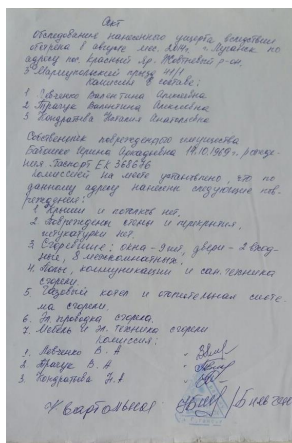 Акт
обследования нанесенного ущерба вследствии
обстрела в августе мес. 2014г. г. Луганска по
адресу пос. Красный Яр. Жовтневый р-он.
3 Мариупольский проезд 41/1
Комиссия в составе:
1 Левченко Валентина
2 Трачук Валентина Алексеевна
3 Кондратова Наталия Анатолиевна
Собственник поврежденного имущества
Бабенко Ирина Аркадиевна 19.10.1969г. рожде-
ния. Паспорт ЕК 368636
комиссией на месте установлено, что по
данному адресу нанесены следующие пов-
реждения:
1 Крыши и потолков нет.
2 Повреждены стены и перекрытия,
штукатурки нет.
3 Сгоревшие: окна - 9 шт, двери - 2 вход-
ные, 8 межкомнатных;
4 Полы, коммуникации и сан. техника
сгорели.
5 Газовый котел и отопительная систе-
ма сгорели.
6 Эл. проводка сгорела.
7. Мебель и эл. техника сгорели
Комиссия:
1. Левченко В. А
2. Трачук В. А
3. Кондратова Н. А
Квартальная